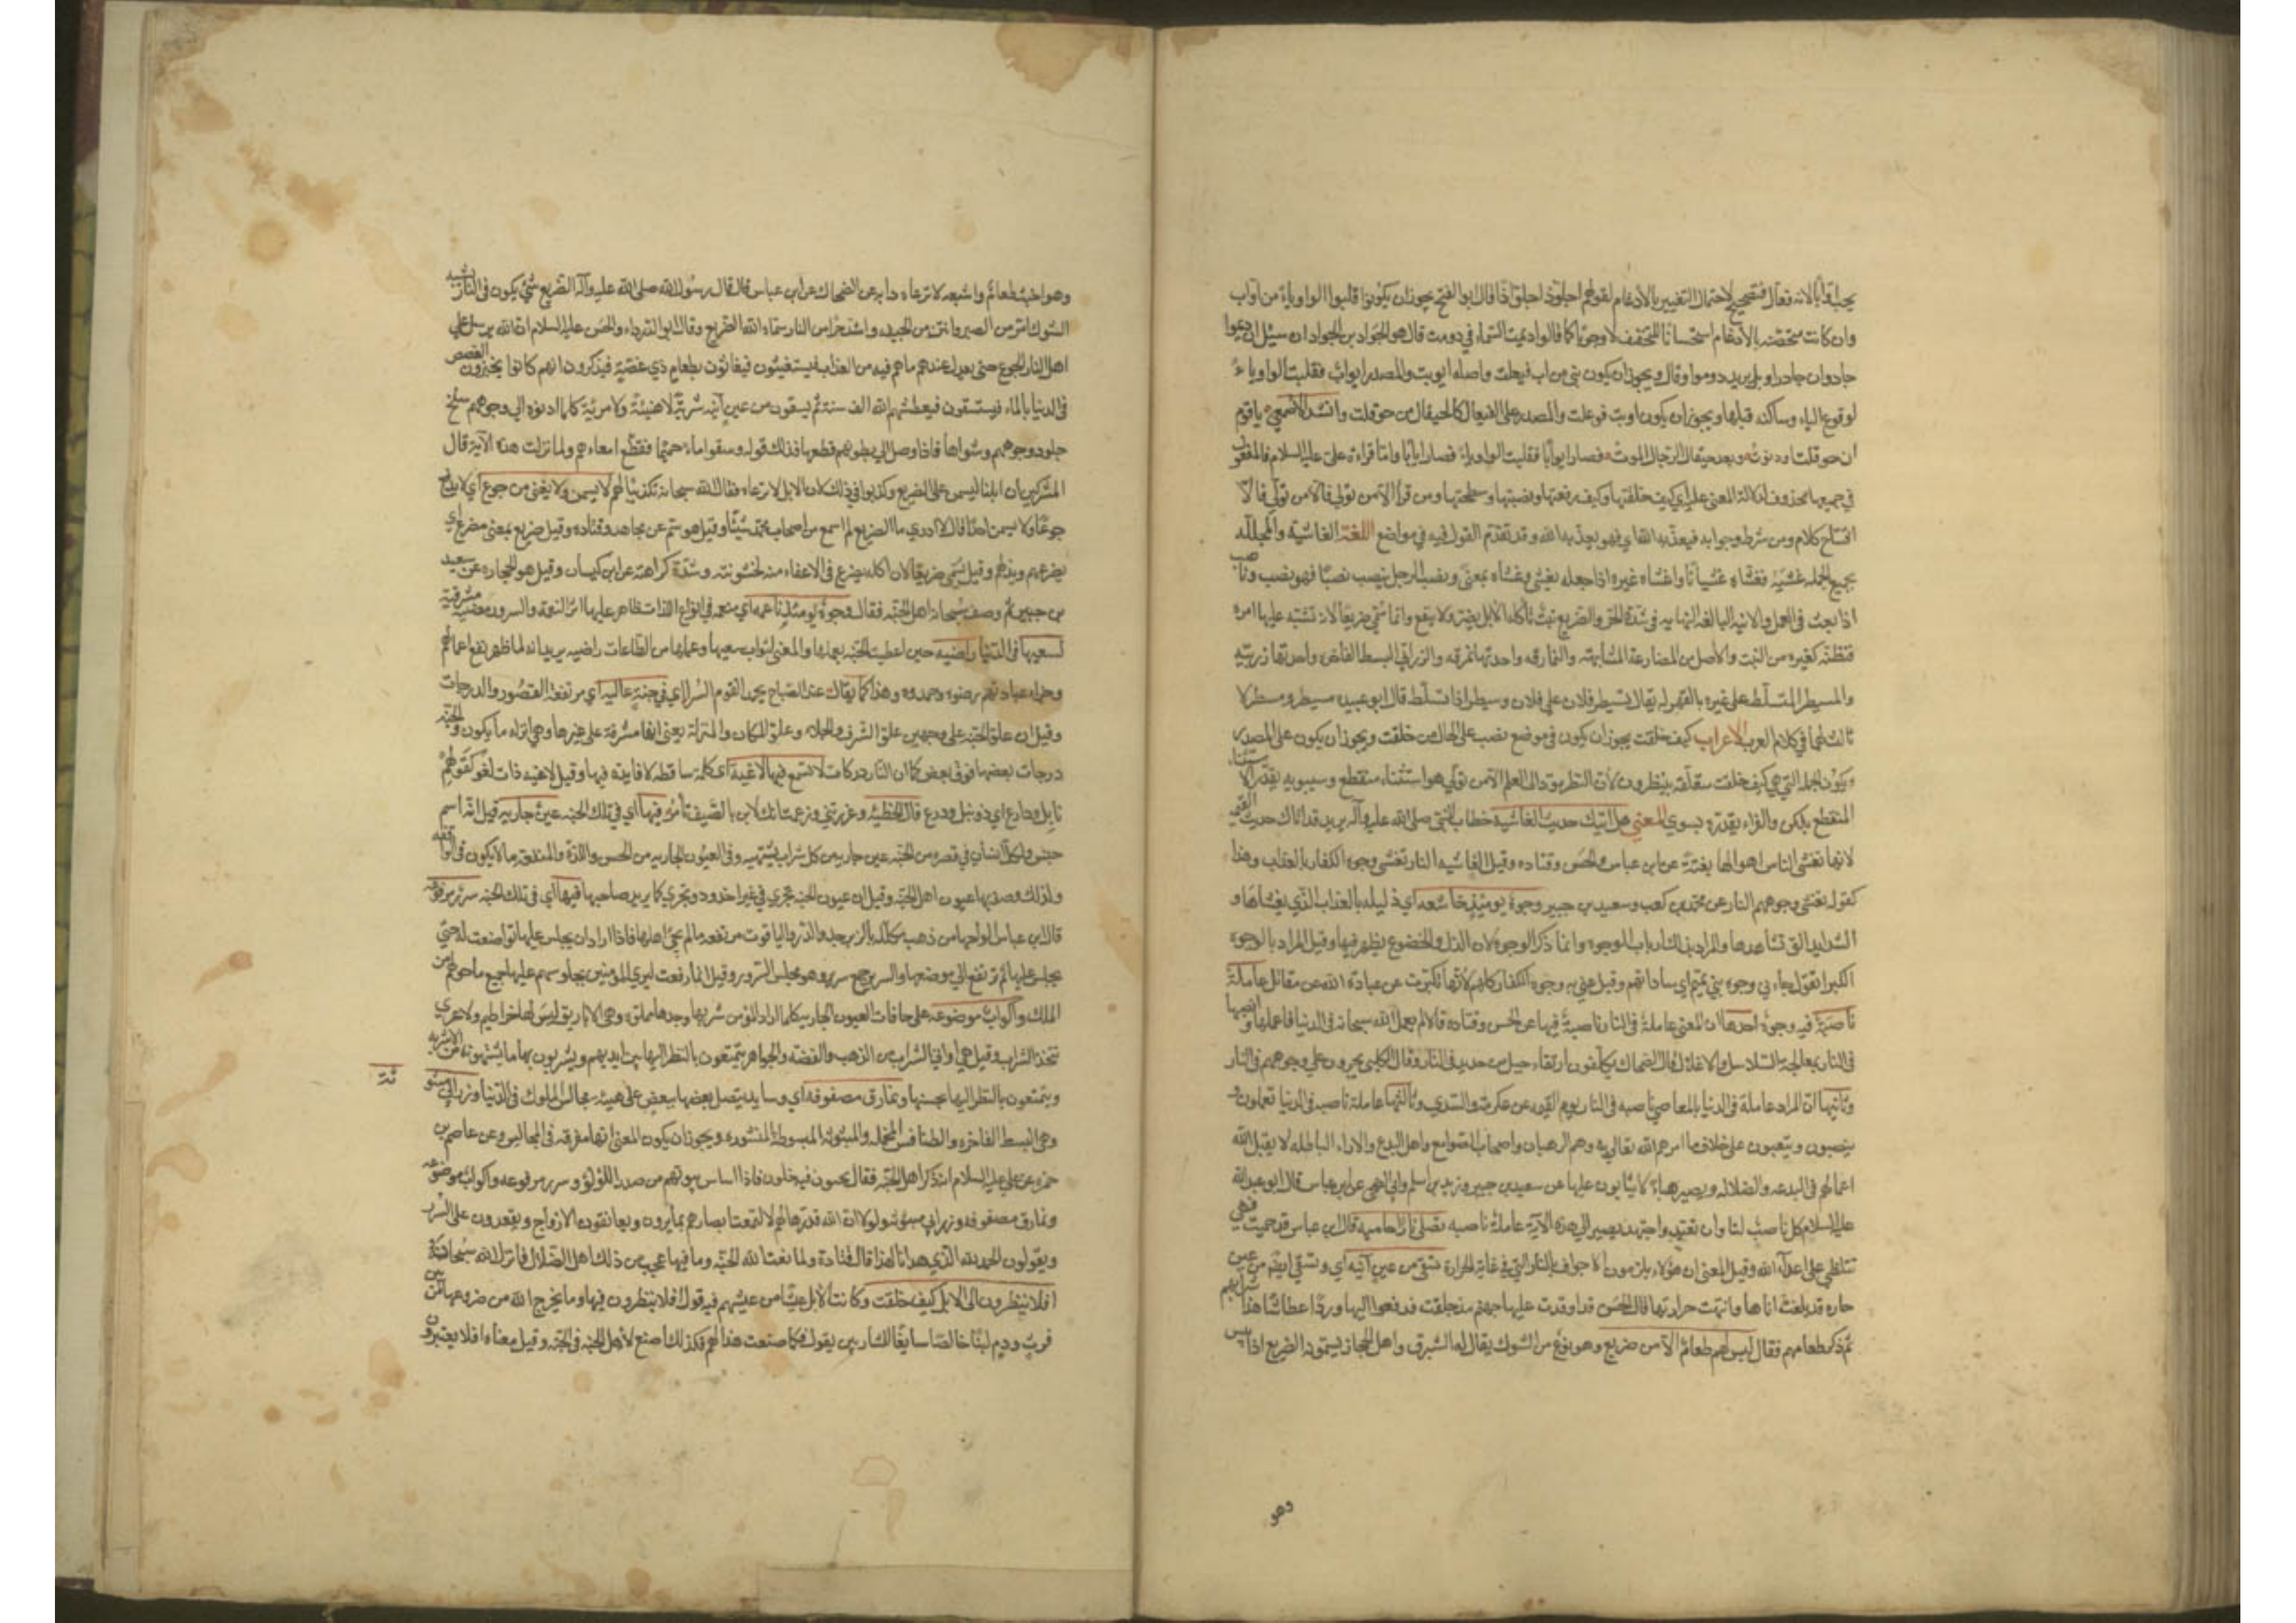 يجب اوّابا لانه فعّال فتصحيح لاحتمال التغيير بالادغام لقولهم اجلوّذ اجلوّاذا قال ابو الفتح يجوز ان يكونوا قلبوا الواو ياء من اوّاب
وان كانت متحصّنه بالادغام استحسانا للتخفيف لا وجوبا كما قالوا ديمت السماء في دومت قال هو الجواد بن الجواد ان سيل ان ديموا
جاد وان جادوا وبل يريد دوموا وقال ويجوز ان يكون بني من اب فيعلت واصله ايوبت والمصدر ايواب فقلبت الواو ياءً
لوقوع الياء وساكنه قبلها ويجوز ان يكون اوبت فوعلت والمصدر على الفيعال كالحيقال من حوقلت وانشد الاصمعي يا قوم
ان حوقلت او دنوت وبعد حيقال الرجال الموت فصار ايوابا فقلبت الواو ياء فصار ايابا واما قراءة علي عليه السلام فالمفعول
في جميعها محذوف لدلالة المعنى عليه اي كيف خلقتها وكيف رفعتها ونصبتها وسطحتها ومن قرأ الا من تولى فالا من تولى فالا
افتتاح كلام ومن شرط وجوابه فيعذبه الله اي فهو يعذبه الله وقد تقدم القول فيه في مواضع اللغة الغاشية والمجللة
بجميع الجمله غشيته تغشاه غشيانا واغشاه غيره اذا جعله يغشى وغشاه بمعنى ونصب الرجل ينصب نصبا فهو نصب وناصب
اذا تعب في العمل والانية البالغه النهايه في شدة الحر والضريع نبت تأكله الابل يضر ولا ينفع وانما سمي ضريعا لانه تشتبه عليها امره
فتظنه كغيره من النبت والاصل من المضارعة المشابهه والنمارقه واحدتها نمرقه والزرابي البسط الفاخره واحدتها زربيه
والمسيطر المتسلط على غيره بالقهر له يقال تسيطر فلان على فلان وسيطر اذا تسلط قال ابو عبيده مسيطر ومبيطر لا
ثالث لهما في كلام العرب الاعراب كيف خلقت يجوز ان يكون في موضع نصب على الحال من خلقت ويجوز ان يكون على المصدر
ويكون الجمله التي هي كيف خلقت متعلقه بينظرون لان النظر يؤدي الى العلم الا من تولى هو استثناء منقطع وسيبويه يقدر الاستثناء
المنقطع بلكن والفراء يقدره بسوى المعنى هل اتيك حديث الغاشيه خطاب للنبي صلى الله عليه وآله يريد قد اتاك حديث القيمه
لانها تغشى الناس باهوالها بغتة عن ابن عباس والحسن وقتاده وقيل الغاشيه النار تغشى وجوه الكفار بالعذاب وهذا
كقوله تغشى وجوههم النار عن محمد بن كعب وسعيد بن جبير وجوه يومئذ خاشعه اي ذليله بالعذاب الذي يغشاها و
الشدايد التي تشاهدها والمراد بذلك ارباب الوجوه وانما ذكر الوجوه لان الذل والخضوع يظهر فيها وقيل المراد بالوجوه
الكبراء تقول جاءني وجوه بني تميم اي ساداتهم وقيل عني به وجوه الكفار كلهم لانها تكبرت عن عبادة الله عن مقاتل عاملة
ناصبة فيه وجوه احدها ان المعنى عاملة في النار ناصبة فيها عن الحسن وقتاده قالا لم يعمل لله سبحانه في الدنيا فاعملها وانصبها
في النار بمعالجة السلاسل والاغلال قال الضحاك يكلفون ارتقاء جبل من حديد في النار وقال الكلبي يجرون على وجوههم في النار
وثانيها ان المراد عاملة في الدنيا بالمعاصي ناصبه في النار يوم القيمه عن عكرمة والسدي وثالثها عاملة ناصبه في الدنيا يعملون و
ينصبون ويتعبون على خلاف ما امرهم الله تعالى به وهم الرهبان واصحاب الصوامع واهل البدع والاراء الباطله لا يقبل الله
اعمالهم في البدعه والضلاله ويصير هباء لا يثابون عليها عن سعيد بن جبير وزيد بن اسلم وابي الضحى عن ابن عباس قال ابو عبد الله
عليه السلام كل ناصب لنا وان تعبد واجتهد يصير الى هذه الآية عاملة ناصبه تصلى نارا حاميه قال ابن عباس قد حميت فهي
تتلظى على اعداء الله وقيل المعنى ان هؤلاء يلزمون الاحراق بالنار التي في غاية الحرارة تسقى من عين آنيه اي وتسقى ايضا من عين
حاره قد بلغت اناها وانتهت حرارتها قال الحسن قد اوقدت عليها جهنم منذ خلقت فدفعوا اليها وردا عطاشا هذا شرابهم
ثم ذكر طعامهم فقال ليس لهم طعام الا من ضريع وهو نوع من الشوك يقال له الشبرق واهل الحجاز يسمونه الضريع اذا يبس
وهو
وهو اخبث طعام واشبعه لا ترعاه دابه عن الضحاك عن ابن عباس قال قال رسول الله صلى الله عليه وآله الضريع شيء يكون في النار يشبه
الشوك امر من الصبر وانتن من الجيفه واشد حرا من النار سماه الله الضريع وقال ابو الدرداء والحسن عليه السلام ان الله يرسل على
اهل النار الجوع حتى يعدل عندهم ما هم فيه من العذاب فيستغيثون فيغاثون بطعام ذي غصّة فيذكرون انهم كانوا يجيزون الغصص
في الدنيا بالماء فيستسقون فيعطشهم الله الف سنة ثم يسقون من عين آنيه شربة لا هنيئة ولا مريّة كلما ادنوه الى وجوههم سلخ
جلود وجوههم وشواها فاذا وصل الى بطونهم قطعها فذلك قوله وسقوا ماء حميما فقطع امعاءهم ولما نزلت هذه الآية قال
المشركين ان ابلنا ليسمن على الضريع وكذبوا في ذلك لان الابل لا ترعاه فقال الله سبحانه تكذيبا لهم لا يسمن ولا يغني من جوع اي لا يدفع
جوعا ولا يسمن احدا قال لا ادري ما الضريع لم اسمع من اصحاب محمد شيئا وقيل هو سم عن مجاهد وقتاده وقيل ضريع بمعنى مضرع اي
يضرعهم ويذلهم وقيل سمي ضريعا لان اكله يضرع في الاعفاء منه لخشونته وشدة كراهته عن ابن كيسان وقيل هو الحجاره عن سعيد
بن جبير ثم وصف سبحانه اهل الجنه فقال وجوه يومئذ ناعمه اي منعمه في انواع اللذات ظاهر عليها اثر النعمة والسرور مضيئه مشرقة
لسعيها في الدنيا راضيه حين اعطيت الجنه بعملها والمعنى لثواب سعيها وعملها من الطاعات راضيه يريد انه لما ظهر نفع اعمالهم
وجزاء عبادتهم رضوه وحمدوه وهذا كما يقال عند الصباح يحمد القوم السرى في جنة عاليه اي مرتفعة القصور والدرجات
وقيل ان علو الجنه على وجهين علو الشرف والجلاله وعلو المكان والمنزلة يعنى انها مشرفة على غيرها وهي انزه ما يكون والجنه
درجات بعضها فوق بعض كما ان النار دركات لا تسمع فيها لاغية اي كلمة ساقطه لا فايده فيها وقيل لاغيه ذات لغو كقولهم
نابل ودارع اي ذو نبل ودرع قال الحطيئه وغررتني وزعمت انك لابن بالصيف تامر فيها اي في تلك الجنه عين جاريه قيل انه اسم
جنس ولكل انسان في قصره من الجنه عين جاريه من كل شراب يشتهيه وفي العيون الجاريه من الحسن واللذة والمنفعه ما لا يكون في الواقفه
ولذلك وصف بها عيون اهل الجنه وقيل ان عيون الجنه تجري في غير اخدود وتجري كما يريد صاحبها فيها اي في تلك الجنه سرر مرفوعه
قال ابن عباس الواحها من ذهب مكللة بالزبرجد والدر والياقوت مرتفعه ما لم يجئ اهلها فاذا اراد ان يجلس عليها تواضعت له حتى
يجلس عليها ثم ترتفع الى موضعها والسرر جمع سرير وهو مجلس السرور وقيل انما رفعت ليرى المؤمنين بجلوسهم عليها جميع ما حولهم من
الملك واكواب موضوعه على حافات العيون الجاريه كلما اراد المؤمن شربها وجدها مملوه وهي الاباريق ليس لها خراطيم ولا عرى
تتخذ للشراب وقيل هي اواني الشراب من الذهب والفضه والجواهر يتمتعون بالنظر اليها بين ايديهم ويشربون بها ما يشتهونه من الاشربه
ويتمتعون بالنظر اليها لحسنها ونمارق مصفوفه اي وسايد يتصل بعضها ببعض على هيئة مجالس الملوك في الدنيا وزرابي مبثوثة
وهي البسط الفاخره والطنافس المخمله والمبثوثه المبسوطه المنشوره ويجوز ان يكون المعنى انها مفرقه في المجالس وعن عاصم بن
حمزه عن علي عليه السلام انه ذكر اهل الجنه فقال يجيئون فيدخلون فاذا اساس بيوتهم من صدر اللؤلؤ وسرر مرفوعه واكواب موضوعه
ونمارق مصفوفه وزرابي مبثوثه ولولا ان الله قدرها لهم لالتمعت ابصارهم بما يرون ويعانقون الازواج ويقعدون على السرر
ويقولون الحمد لله الذي هدانا لهذا قال قتادة ولما نعت الله الجنه وما فيها عجب من ذلك اهل الضلال فانزل الله سبحانه
افلا ينظرون الى الابل كيف خلقت وكانت الابل عيشا من عيشهم فيقول افلا ينظرون فيها وما يخرج الله من ضروعها من بين
فرث ودم لبنا خالصا سايغا للشاربين يقول فكما صنعت هذا لهم فكذلك اصنع لاهل الجنه في الجنه وقيل معناه افلا يعتبرون